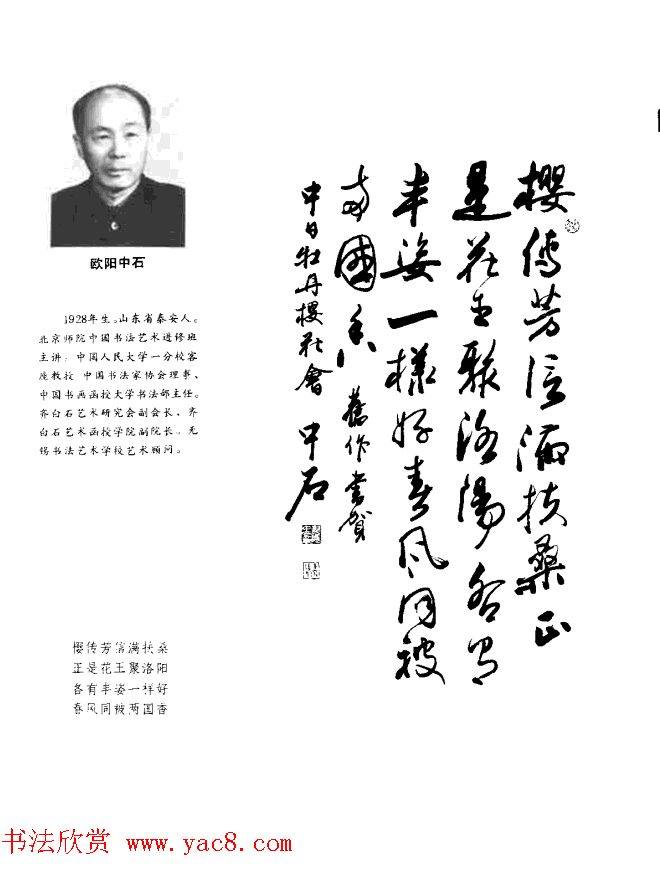 欧阳中石
1928年生。山东省泰安人。
北京师院中国书法艺术进修班
主讲，中国人民大学一分校客
座教授，中国书法家协会理事、
中国书画函授大学书法部主任。
齐白石艺术研究会副会长、齐
白石艺术函授学院副院长、无
锡书法艺术学校艺术顾问。
櫻傳芳信滿扶桑正
是花王聚洛陽各有
丰姿一樣好春风同被
两國香 舊作書賀
中日牡丹櫻花會 中石
樱传芳信满扶桑
正是花王聚洛阳
各有丰姿一样好
春风同被两国香
书法欣赏 www.yac8.com